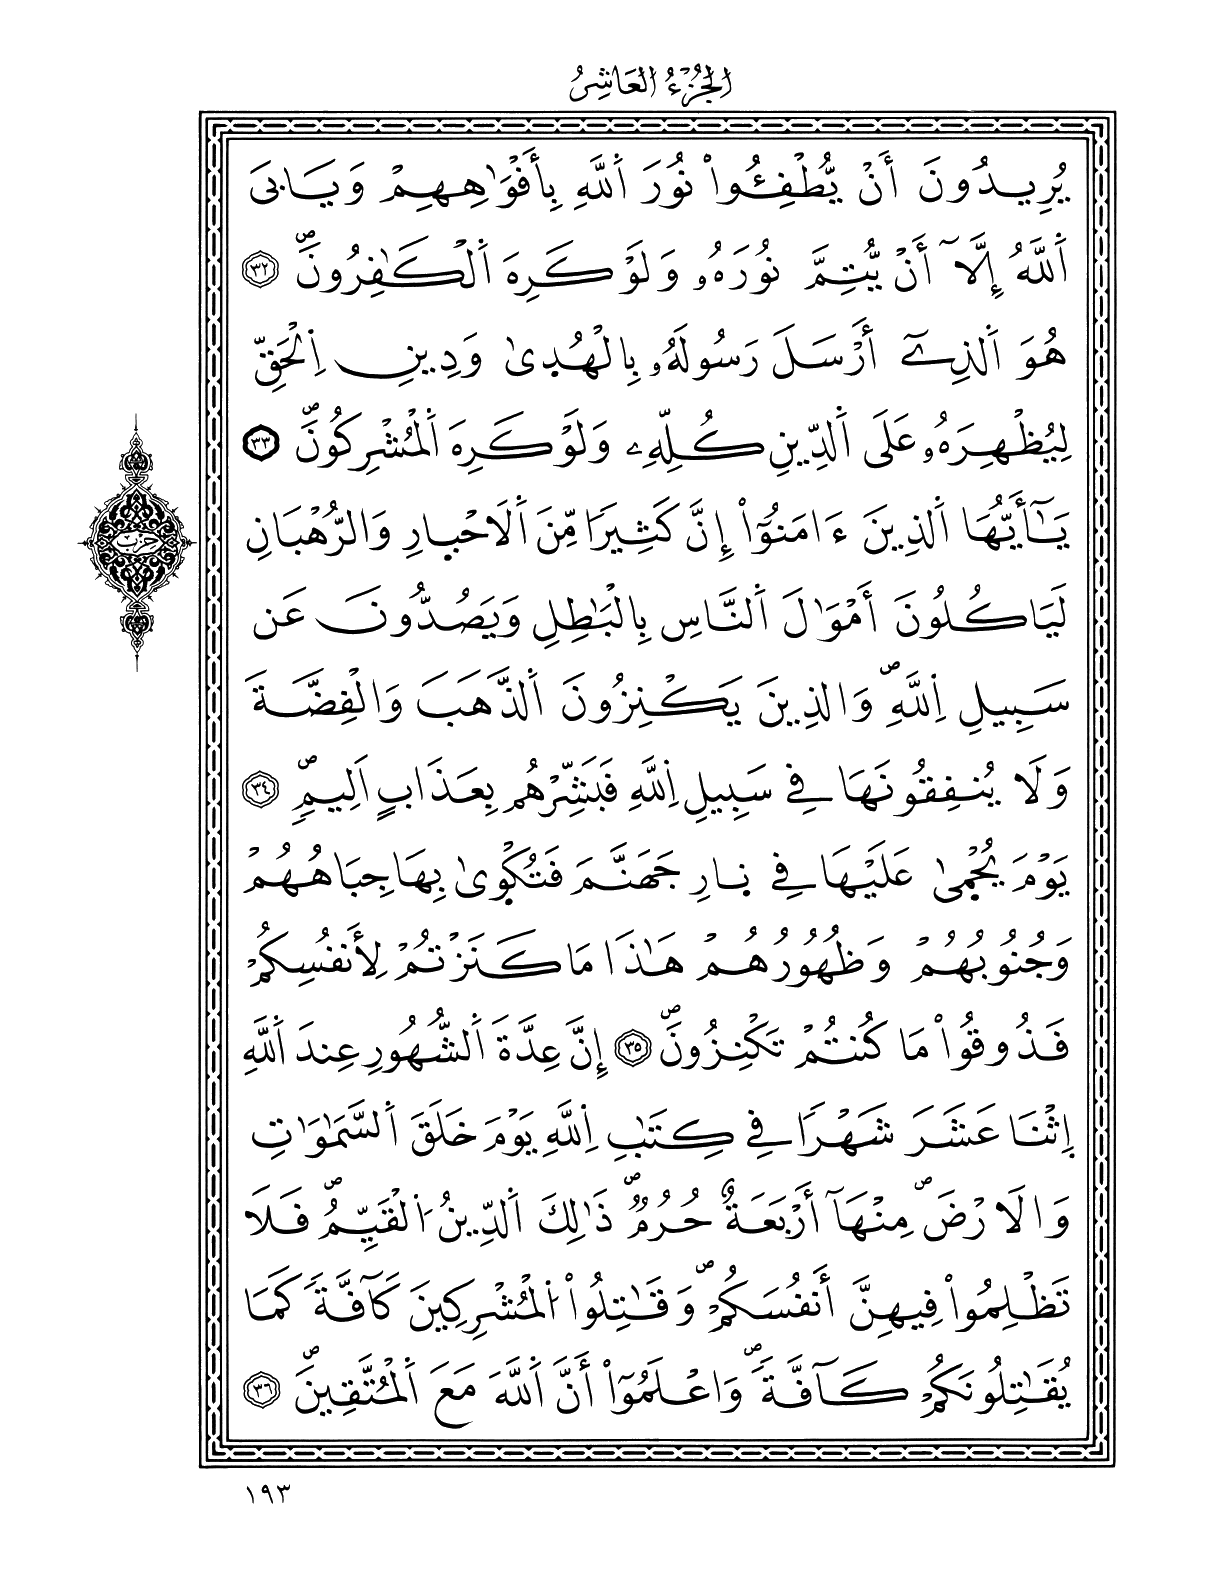 الجُزْءُ العَاشِرُ
يُرِيدُونَ أَنْ يُّطْفِـُٔواْ نُورَ اَ۬للَّهِ بِأَفْوَٰهِهِمْ وَيَابَي
اَ۬للَّهُ إِلَّآ أَنْ يُّتِمَّ نُورَهُۥ وَلَوْ كَرِهَ اَ۬لْكَٰفِرُونَۖ ٣٢
هُوَ اَ۬لذِےٓ أَرْسَلَ رَسُولَهُۥ بِالْهُدَىٰ وَدِينِ اِ۬لْحَقِّ
لِيُظْهِرَهُۥ عَلَى اَ۬لدِّينِ كُلِّهِۦ وَلَوْ كَرِهَ اَ۬لْمُشْرِكُونَۖ ٣٣
يَٰٓأَيُّهَا اَ۬لذِينَ ءَامَنُوٓاْ إِنَّ كَثِيراٗ مِّنَ اَ۬لَاحْبارِ وَالرُّهْبَانِ
لَيَاكُلُونَ أَمْوَٰلَ اَ۬لنَّاسِ بِالْبَٰطِلِ وَيَصُدُّونَ عَن
سَبِيلِ اِ۬للَّهِۖ وَالذِينَ يَكْنِزُونَ اَ۬لذَّهَبَ وَالْفِضَّةَ
وَلَا يُنفِقُونَهَا فِے سَبِيلِ اِ۬للَّهِ فَبَشِّرْهُم بِعَذَابٍ اَلِيمٖۖ ٣٤
يَوْمَ يُحْمىٰ عَلَيْهَا فِے نارِ جَهَنَّمَ فَتُكْوىٰ بِهَا جِبَاهُهُمْ
وَجُنُوبُهُمْ وَظُهُورُهُمْ هَٰذَا مَا كَنَزْتُمْ لِأَنفُسِكُمْ
فَذُوقُواْ مَا كُنتُمْ تَكْنِزُونَۖ ٣٥ إِنَّ عِدَّةَ اَ۬لشُّهُورِ عِندَ اَ۬للَّهِ
اِ۪ثْنَا عَشَرَ شَهْراٗ فِے كِتَٰبِ اِ۬للَّهِ يَوْمَ خَلَقَ اَ۬لسَّمَٰوَٰتِ
وَالَارْضَۖ مِنْهَآ أَرْبَعَةٌ حُرُمٞۖ ذَٰلِكَ اَ۬لدِّينُ اُ۬لْقَيِّمُۖ فَلَا
تَظْلِمُواْ فِيهِنَّ أَنفُسَكُمْۖ وَقَٰتِلُواْ اُ۬لْمُشْرِكِينَ كَآفَّةٗ كَمَا
يُقَٰتِلُونَكُمْ كَآفَّةٗۖ وَاعْلَمُوٓاْ أَنَّ اَ۬للَّهَ مَعَ اَ۬لْمُتَّقِينَۖ ٣٦
حزب
١٩٣